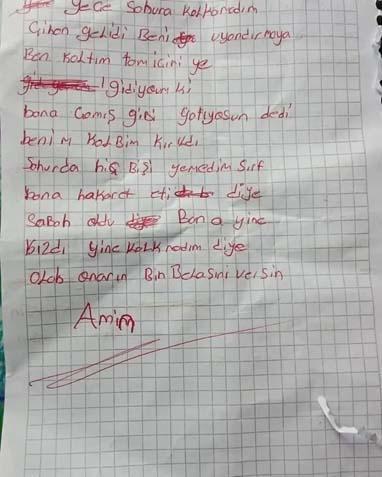 yece Sobura kalkanadım
Cihan geldi Beni uyandırmaya
Ben kaltım tam icini ye
gidiyam ki
bana Gamış gibi yatıyasun dedi
benim kalBim kırıldı
Sahurda hiç Bişi yemedim sırf
bana hakaret eti diye
Sabah oldu Bana yine
kızdı yine kalknadım diye
Olah onarın Bin Belasını versin
Amim